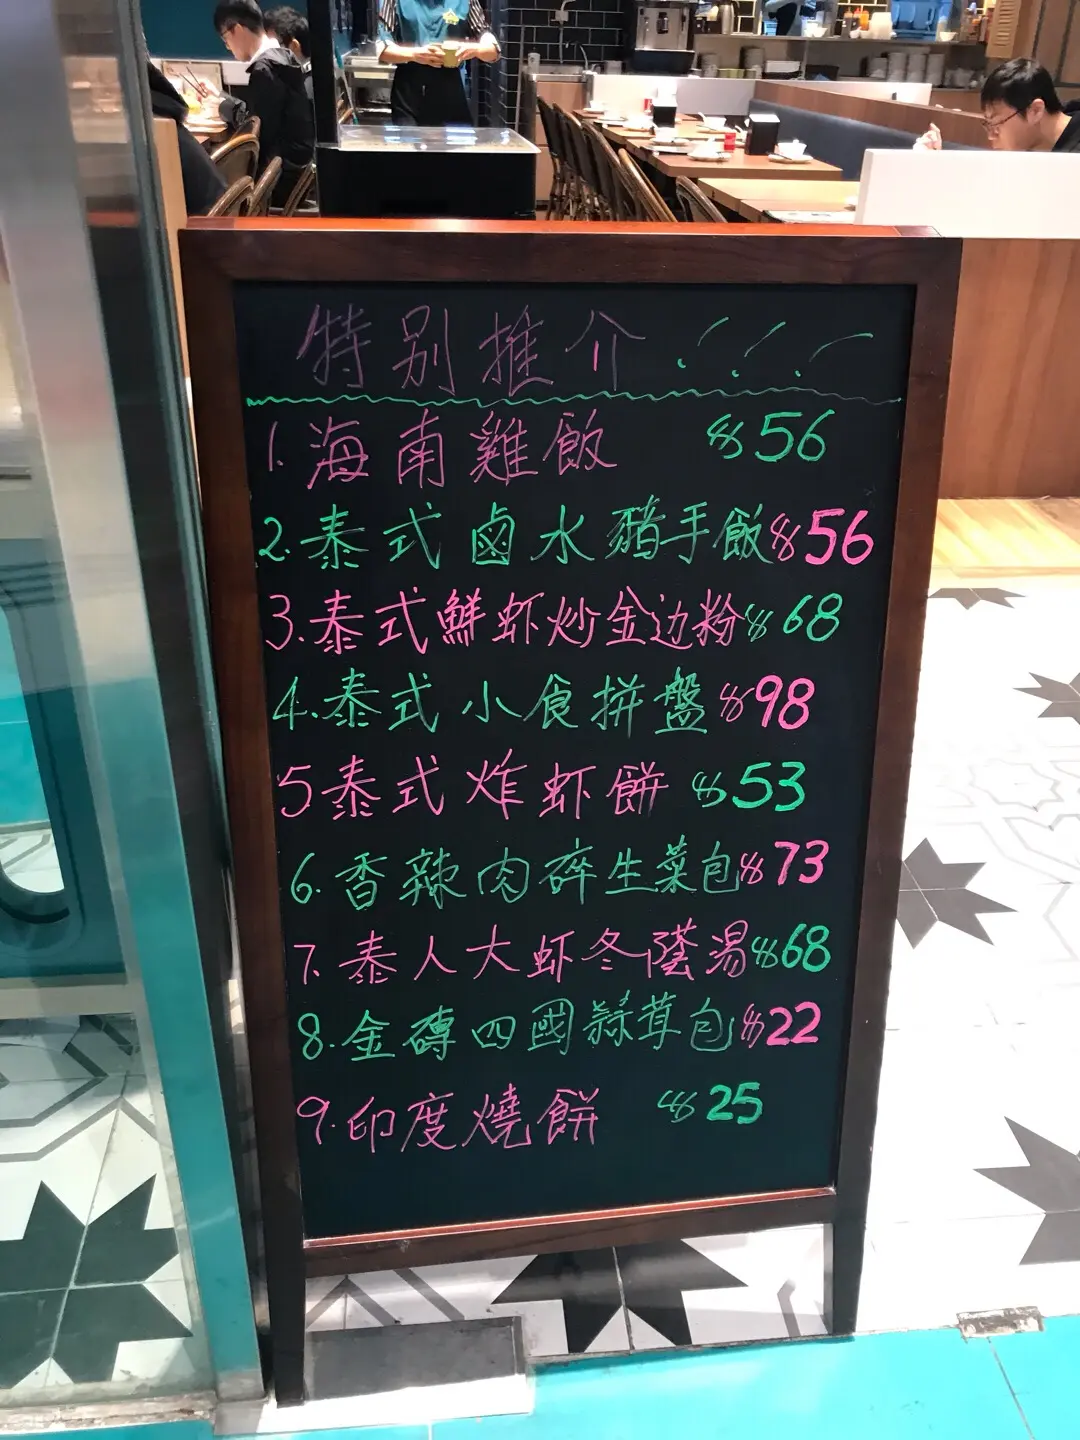 特別推介!!!
1.海南雞飯 $56
2.泰式鹵水豬手飯$56
3.泰式鮮虾炒金边粉$68
4.泰式小食拼盤$98
5泰式炸虾餅 $53
6.香辣肉碎生菜包$73
7.泰人大虾冬蔭湯$68
8.金磚四國蒜茸包$22
9.印度燒餅 $25